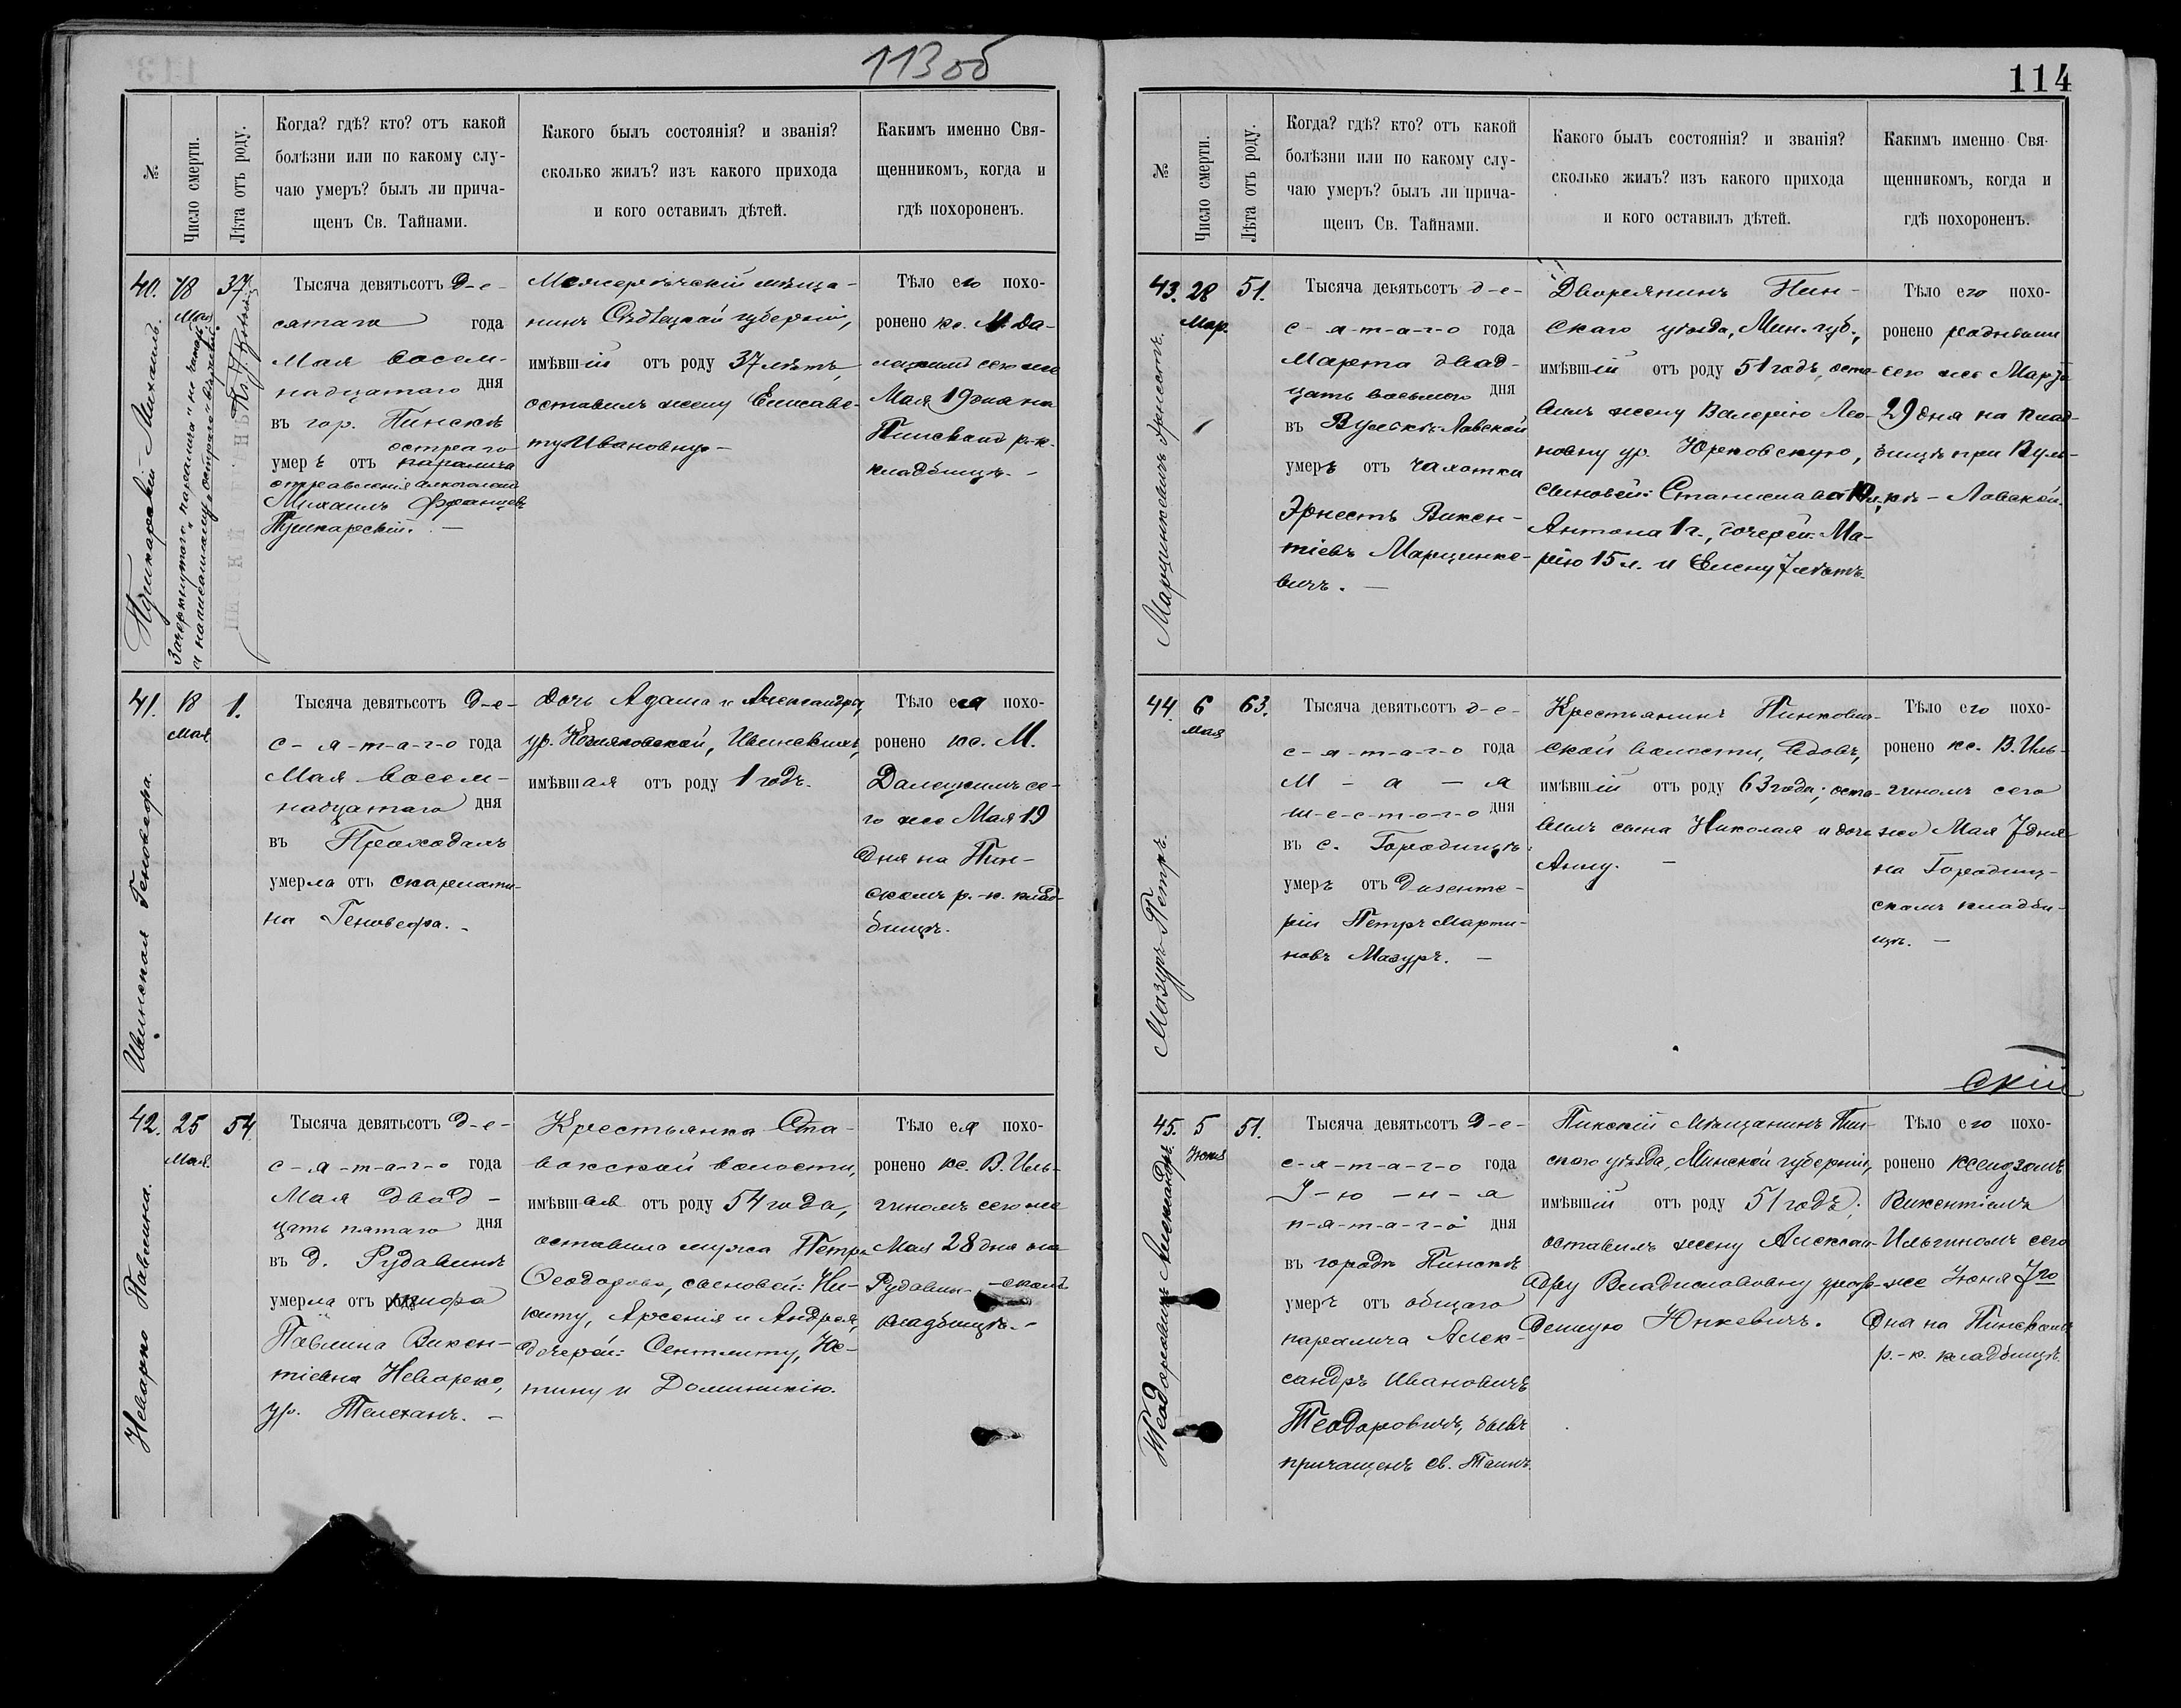 113 об
№
Число смерти.
Лѣта отъ роду.
Когда? гдѣ? кто? отъ какой
болѣзни или по какому слу-
чаю умеръ? былъ ли прича-
щенъ Св. Тайнами.
Какого былъ состоянія? и званія?
сколько жилъ? изъ какого прихода
и кого оставилъ дѣтей.
Какимъ именно Свя-
щенникомъ, когда и
гдѣ похороненъ.
40.
18
Мая
37
Пушкарскій Михаилъ.
Зачеркнутаго "паралича" не читать,
а написанному "остраго" вѣрить.
Тысяча девятьсотъ д-е-
сятаго года
Мая восем-
надцатаго дня
въ гор. Пинскѣ
остраго
умеръ отъ паралича
отравленія алкоголемъ
Михаилъ Францевъ
Пушкарскій. —
Межерѣчскій мѣща-
нинъ Сѣдлецкой губерніи,
имѣвшій отъ роду 37 лѣтъ,
оставилъ жену Елисаве-
ту Ивановну. —
Тѣло его похо-
ронено кс. М. Да-
лецкимъ сего же
Мая 19 дня на
Пинскомъ р.-к.
кладбищѣ. -
41.
18
Мая
1.
Ивинская Геновефа.
Тысяча девятьсотъ д-е-
с-я-т-а-г-о года
Мая восем-
надцатаго дня
въ
умерла отъ скарлати-
на Геновефа. -
дочь Адама и Александра,
ур. Ивинскихъ,
имѣвшая отъ роду 1 годъ.
Тѣло ея похо-
ронено кс. М.
Далецкимъ се-
го же Мая 19
дня на Пин-
скомъ р.-к. клад-
бищѣ.
42.
25
Мая.
54
Неварко Павлина.
Тысяча девятьсотъ д-е-
с-я-т-а-г-о года
Мая двад-
цать пятаго дня
въ д. Рудавинѣ
умерла отъ
Павлина Викен-
тіевна Неварко,
ур. —
Крестьянка Ста-
волости,
имѣвшая отъ роду 54 года,
оставила мужа Петра
Ѳеодорова, сыновей: Ни-
киту, Арсенія и Андрея,
дочерей: Юс-
тину и Доминикію.
Тѣло ея похо-
ронено кс. В. Иль-
гиномъ сего же
Мая 28 дня на
Рудавин- -скомъ
кладбищѣ. -
114
№
Число смерти.
Лѣта отъ роду.
Когда? гдѣ? кто? отъ какой
болѣзни или по какому слу-
чаю умеръ? былъ ли прича-
щенъ Св. Тайнами.
Какого былъ состоянія? и званія?
сколько жилъ? изъ какого прихода
и кого оставилъ дѣтей.
Какимъ именно Свя-
щенникомъ, когда и
гдѣ похороненъ.
43.
28
Мар.
51.
Марцинкевичъ Эрнестъ.
Тысяча девятьсотъ д-е-
с-я-т-а-г-о года
Марта двад-
цать восьмого дня
въ Вулькѣ-Лавской
умеръ отъ чахотки
Эрнестъ Викен-
тіевъ Марцинке-
вичъ. —
Дворянинъ Пин-
скаго уѣзда, Мин. губ.,
имѣвшій отъ роду 51 годъ, оста-
вилъ жену Валерію Лео-
новну ур. Юрковскую,
сыновей: Станислава
Антона 1 г., дочерей: Ма-
рію 15 л. и Елену 7 лѣтъ.
Тѣло его похо-
ронено родными
сего же Марта
29 дня на клад-
бищѣ при Вуль-
кѣ - Лавской.
44.
6
Мая
63.
Мазуръ Петръ.
Тысяча девятьсотъ д-е-
с-я-т-а-г-о года
М - а - я
ш-е-с-т-о-г-о дня
въ с. Городищѣ
умеръ отъ дизенте-
ріи Петръ Марти-
новъ Мазуръ. —
Крестьянинъ Пинкович-
ской волости, вдовъ,
имѣвшій отъ роду 63 года; оста-
вилъ сына Николая и дочь
Анну. —
Тѣло его похо-
ронено кс. В. Иль-
гиномъ сего
же Мая 7 дня
на Городищ-
скомъ кладби-
щѣ. —
скій
45.
5
Іюня
51.
Теодоровичъ Александръ.
Тысяча девятьсотъ д-е-
с-я-т-а-г-о года
І-ю-н-я
п-я-т-а-г-о дня
въ городѣ Пинскѣ
умеръ отъ общаго
паралича Алек-
сандръ Ивановичъ
Теодоровичъ, былъ
причащенъ св. Таинъ.
Пинскій Мѣщанинъ Пин-
скаго уѣзда, Минской губерніи,
имѣвшій отъ роду 51 годъ;
оставилъ жену Алексан-
дру Владиславовну урож-
денную Юнкевичъ.
Тѣло его похо-
ронено ксендзомъ
Викентіемъ
Ильгиномъ сего
же Іюня 7го
дня на Пинскомъ
р.-к. кладбищѣ.